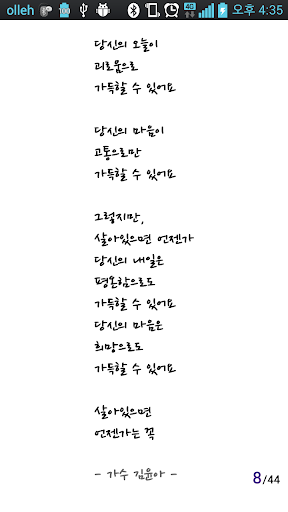 olleh 100 4G 오후 4:35
당신의 오늘이
괴로움으로
가득할 수 있어요
당신의 마음이
고통으로만
가득할 수 있어요
그렇지만,
살아있으면 언젠가
당신의 내일은
평온함으로도
가득할 수 있어요
당신의 마음은
희망으로도
가득할 수 있어요
살아있으면
언젠가는 꼭
- 가수 김윤아 -
8/44